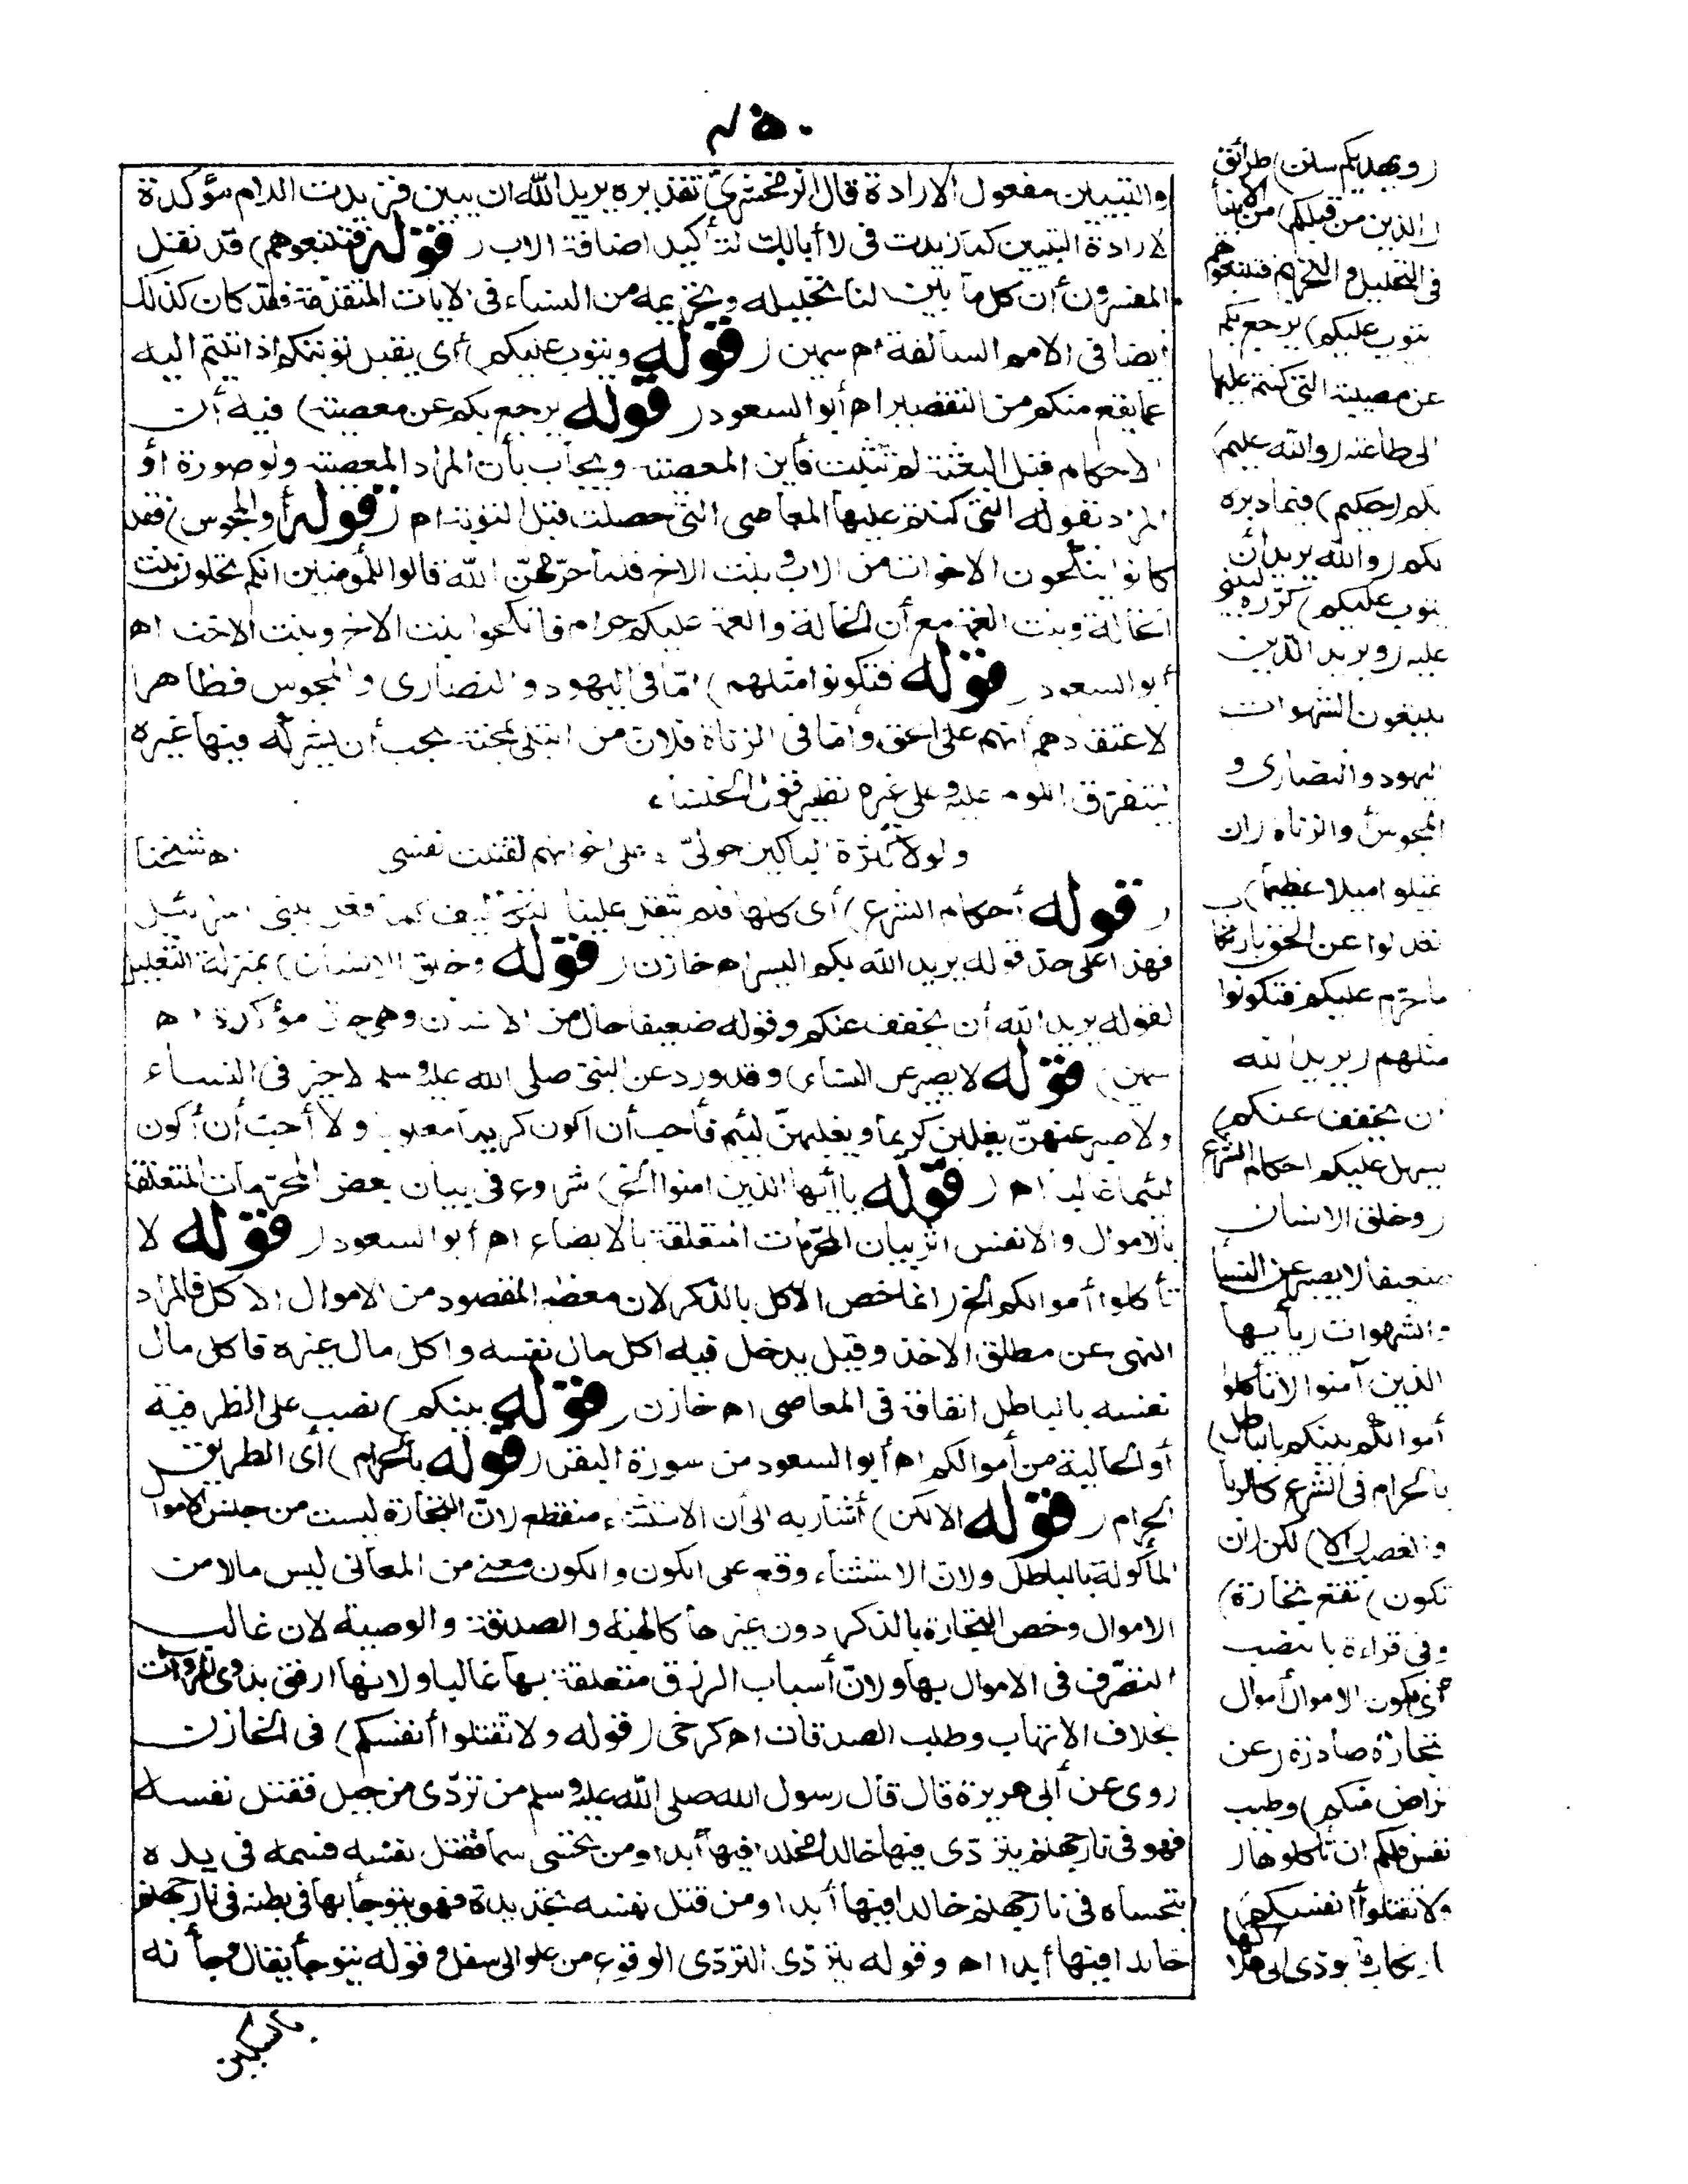 والتبيين مفعول الارادة قال الزمخشرىّ تقديره يريد الله ان يبين فزيدت اللام مؤكدة
لارادة التبيين كما زيدت فى لا أبالك لتأكيد اضافة الاب (قوله فتتبعوهم) قد نقل
المفسرون أن كل ما بين لنا تحليله وتحريمه من النساء فى الآيات المتقدّمة فقد كان كذلك
ايضا فى الامم السالفة اه سمين (قوله ويتوب عليكم) أى يقبل توبتكم اذا تبتم اليه
عما يقع منكم من التقصير اه أبو السعود (قوله يرجع بكم عن معصيته) فيه أن
الاحكام قبل البعثة لم تثبت فأين المعصية ويجاب بأن المراد المعصية ولو صورة أو
المراد بقوله التى كنتم عليها المعاصى التى حصلت قبل التوبة اه (قوله أو المجوس) فقد
كانوا ينكحون الاخوات من الاب وبنت الاخ فلما حرّمهنّ الله قالوا للمؤمنين انكم تحلون بنت
الخالة وبنت العمة مع أن الخالة والعمة عليكم حرام فانكحوا بنت الاخ وبنت الاخت اه
أبو السعود (قوله فتكونوا مثلهم) امّا فى اليهود والنصارى والمجوس فظاهر
لاعتقادهم أنهم على الحق وأما فى الزناة فلان من ابتلى بمحنة يحب أن يشركه فيها غيره
ليتفرق اللوم عليه وعلى غيره نظير قول الخنساء
ولولا كثرة الباكين حولىّ * على اخوانهم لقتلت نفسى اه شيخنا
(قوله أحكام الشرع) أى كلها فلم يثقل علينا التكاليف كما ثقل بنى اسرائيل
فهذا على حدّ قوله يريد الله بكم اليسر اه خازن (قوله وخلق الانسان) بمنزلة التعليل
لقوله يريد الله أن يخفف عنكم وقوله ضعيفا حال من الانسان وهى حال مؤكدة اه
سمين (قوله لا يصبر عن النساء) وقد ورد عن النبىّ صلى الله عليه وسلم لا خير فى النساء
ولا صبر عنهنّ يغلبن كريما ويغلبهنّ لئيم فأحب أن اكون كريما مغلوبا ولا أحبّ أن أكون
لئيما غالبا اه (قوله يا أيها الذين امنوا الخ) شروع فى بيان بعض المحرّمات المتعلقة
بالاموال والانفس اثر بيان المحرّمات المتعلقة بالابضاع اه أبو السعود (قوله لا
تأكلوا أموالكم الخ) انما خص الاكل بالذكر لان معظم المقصود من الاموال الاكل فالمراد
النهى عن مطلق الاخذ وقيل يدخل فيه اكل مال نفسه واكل مال غيره فاكل مال
نفسه بالباطل انفاقه فى المعاصى اه خازن (قوله بينكم) نصب على الظرفية
أو الحالية من أموالكم اه أبو السعود من سورة البقر (قوله بالحرام) أى الطريق
الحرام (قوله الا لكن) أشار به الى أن الاستثناء منقطع لانّ التجارة ليست من جنس الاموال
المأكولة بالباطل ولان الاستثناء وقع على الكون والكون معنى من المعانى ليس مالا من
الاموال وخص التجارة بالذكر دون غيرها كالهبة والصدقة والوصية لان غالب
التصرّف فى الاموال بها ولانّ أسباب الرزق متعلقة بها غالبا ولانها ارفق بذوى المروآت
بخلاف الاتهاب وطلب الصدقات اه كرخى (قوله ولا تقتلوا أنفسكم) فى الخازن
روى عن أبى هريرة قال قال رسول الله صلى الله عليه وسلم من تردّى من جبل فقتل نفسه
فهو فى نار جهنم يتردّى فيها خالدا مخلدا فيها أبدا ومن تحسى سما فقتل نفسه فسمه فى يده
يتحساه فى نار جهنم خالدا فيها أبدا ومن قتل نفسه بحديدة فهو يتوجأ بها فى بطنه فى نار جهنم
خالدا فيها أبدا اه وقوله يتردّى التردّى الوقوع من علو الى سفل وقوله يتوجأ يقال وجأته
بالسكين
(ويهديكم سنن) طرائق
(الذين من قبلكم) من الانبياء
فى التحليل والتحريم فتتبعوهم
(ويتوب عليكم) يرجع بكم
عن معصيته التى كنتم عليها
الى طاعته (والله عليم)
بكم (حكيم) فيما دبره
لكم (والله يريد أن
يتوب عليكم) كرّره ليبنى
عليه (ويريد الذين
يتبعون الشهوات)
اليهود والنصارى و
المجوس أو الزناة (ان
تميلوا ميلا عظيما)
تعدلوا عن الحق بارتكاب
ما حرّم عليكم فتكونوا
مثلهم (يريد الله
ان يخفف عنكم)
يسهل عليكم احكام الشرع
(وخلق الانسان
ضعيفا) لا يصبر عن النساء
والشهوات (يا أيها
الذين آمنوا لا تأكلوا
أموالكم بينكم بالباطل)
بالحرام فى الشرع كالربا
والغصب (الا) لكن (ان
تكون) تقع (تجارة)
وفى قراءة بالنصب
أى تكون الاموال أموال
تجارة صادرة (عن
تراض منكم) وطيب
نفس فلكم ان تأكلوها (
ولا تقتلوا أنفسكم)
بارتكاب ما يؤدى الى هلاكها